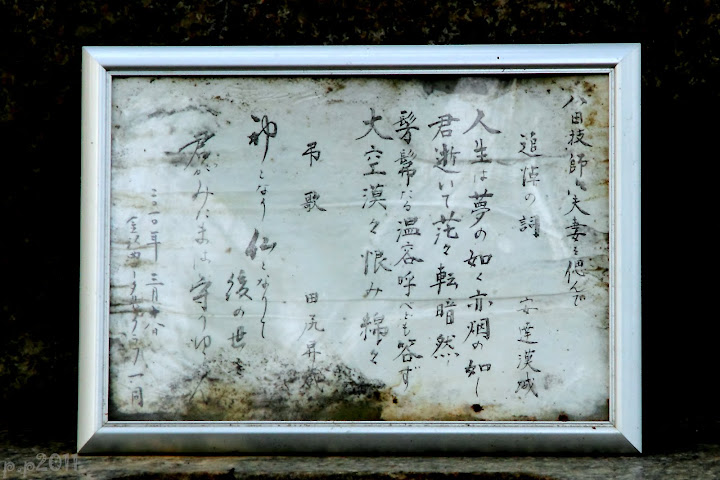 八田技師ご夫妻を偲んで
追悼の詞 安達漢城
人生は夢の如く亦烟の如し
君逝いて茫々転暗然
髣髴たる温容呼べども答ず
大空漠々恨み綿々
弔歌 田尻昇
神となり仏となりて
後の世を
君がみたまは守りゆく
二〇一〇年三月廿八
金沢西ロータリークラブ一同
p.p2011